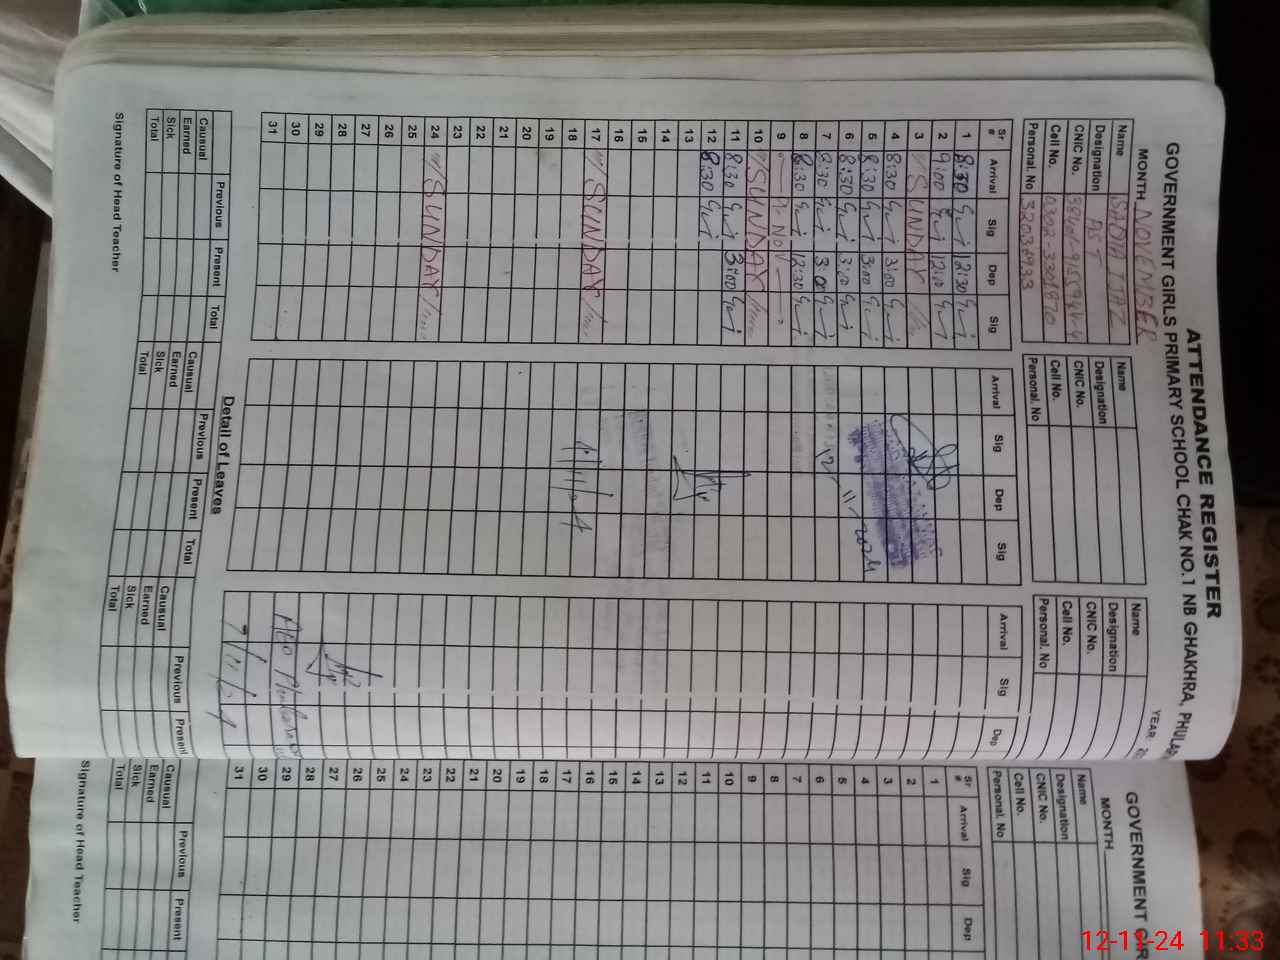 ATTENDANCE REGISTER
GOVERNMENT GIRLS PRIMARY SCHOOL CHAK NO.1 NB GHAKHRA,
MONTH NOVEMBER YEAR:
Name SADIA IJAZ Name Name
Designation PST Designation Designation
CNIC No. CNIC No. CNIC No.
Cell No. Cell No. Cell No.
Personal. No Personal. No Personal. No
Sr # Arrival Sig Dep Sig Arrival Sig Dep Sig Arrival Sig Dep
1 8:30 12:30
2 9:00 12:00
3 SUNDAY
4 8:30 3:00
5 8:30 3:00
6 8:30 3:00
7 8:30 3:00
8 8:30 12:30
9
10 SUNDAY
11 8:30 3:00
12 8:30
13
14
15
16
17 SUNDAY
18
19
20
21
22
23
24 SUNDAY
25
26
27
28
29
30
31
12-11-2024
Detail of Leaves
Previous Present Total Previous Present Total Previous Present
Causual Causual Causual
Earned Earned Earned
Sick Sick Sick
Total Total Total
Signature of Head Teacher
GOVERNMENT
MONTH
Name
Designation
CNIC No.
Cell No.
Personal. No
Sr # Arrival Sig Dep
1
2
3
4
5
6
7
8
9
10
11
12
13
14
15
16
17
18
19
20
21
22
23
24
25
26
27
28
29
30
31
Previous Present
Causual
Earned
Sick
Total
Signature of Head Teacher
12-11-24 11:33